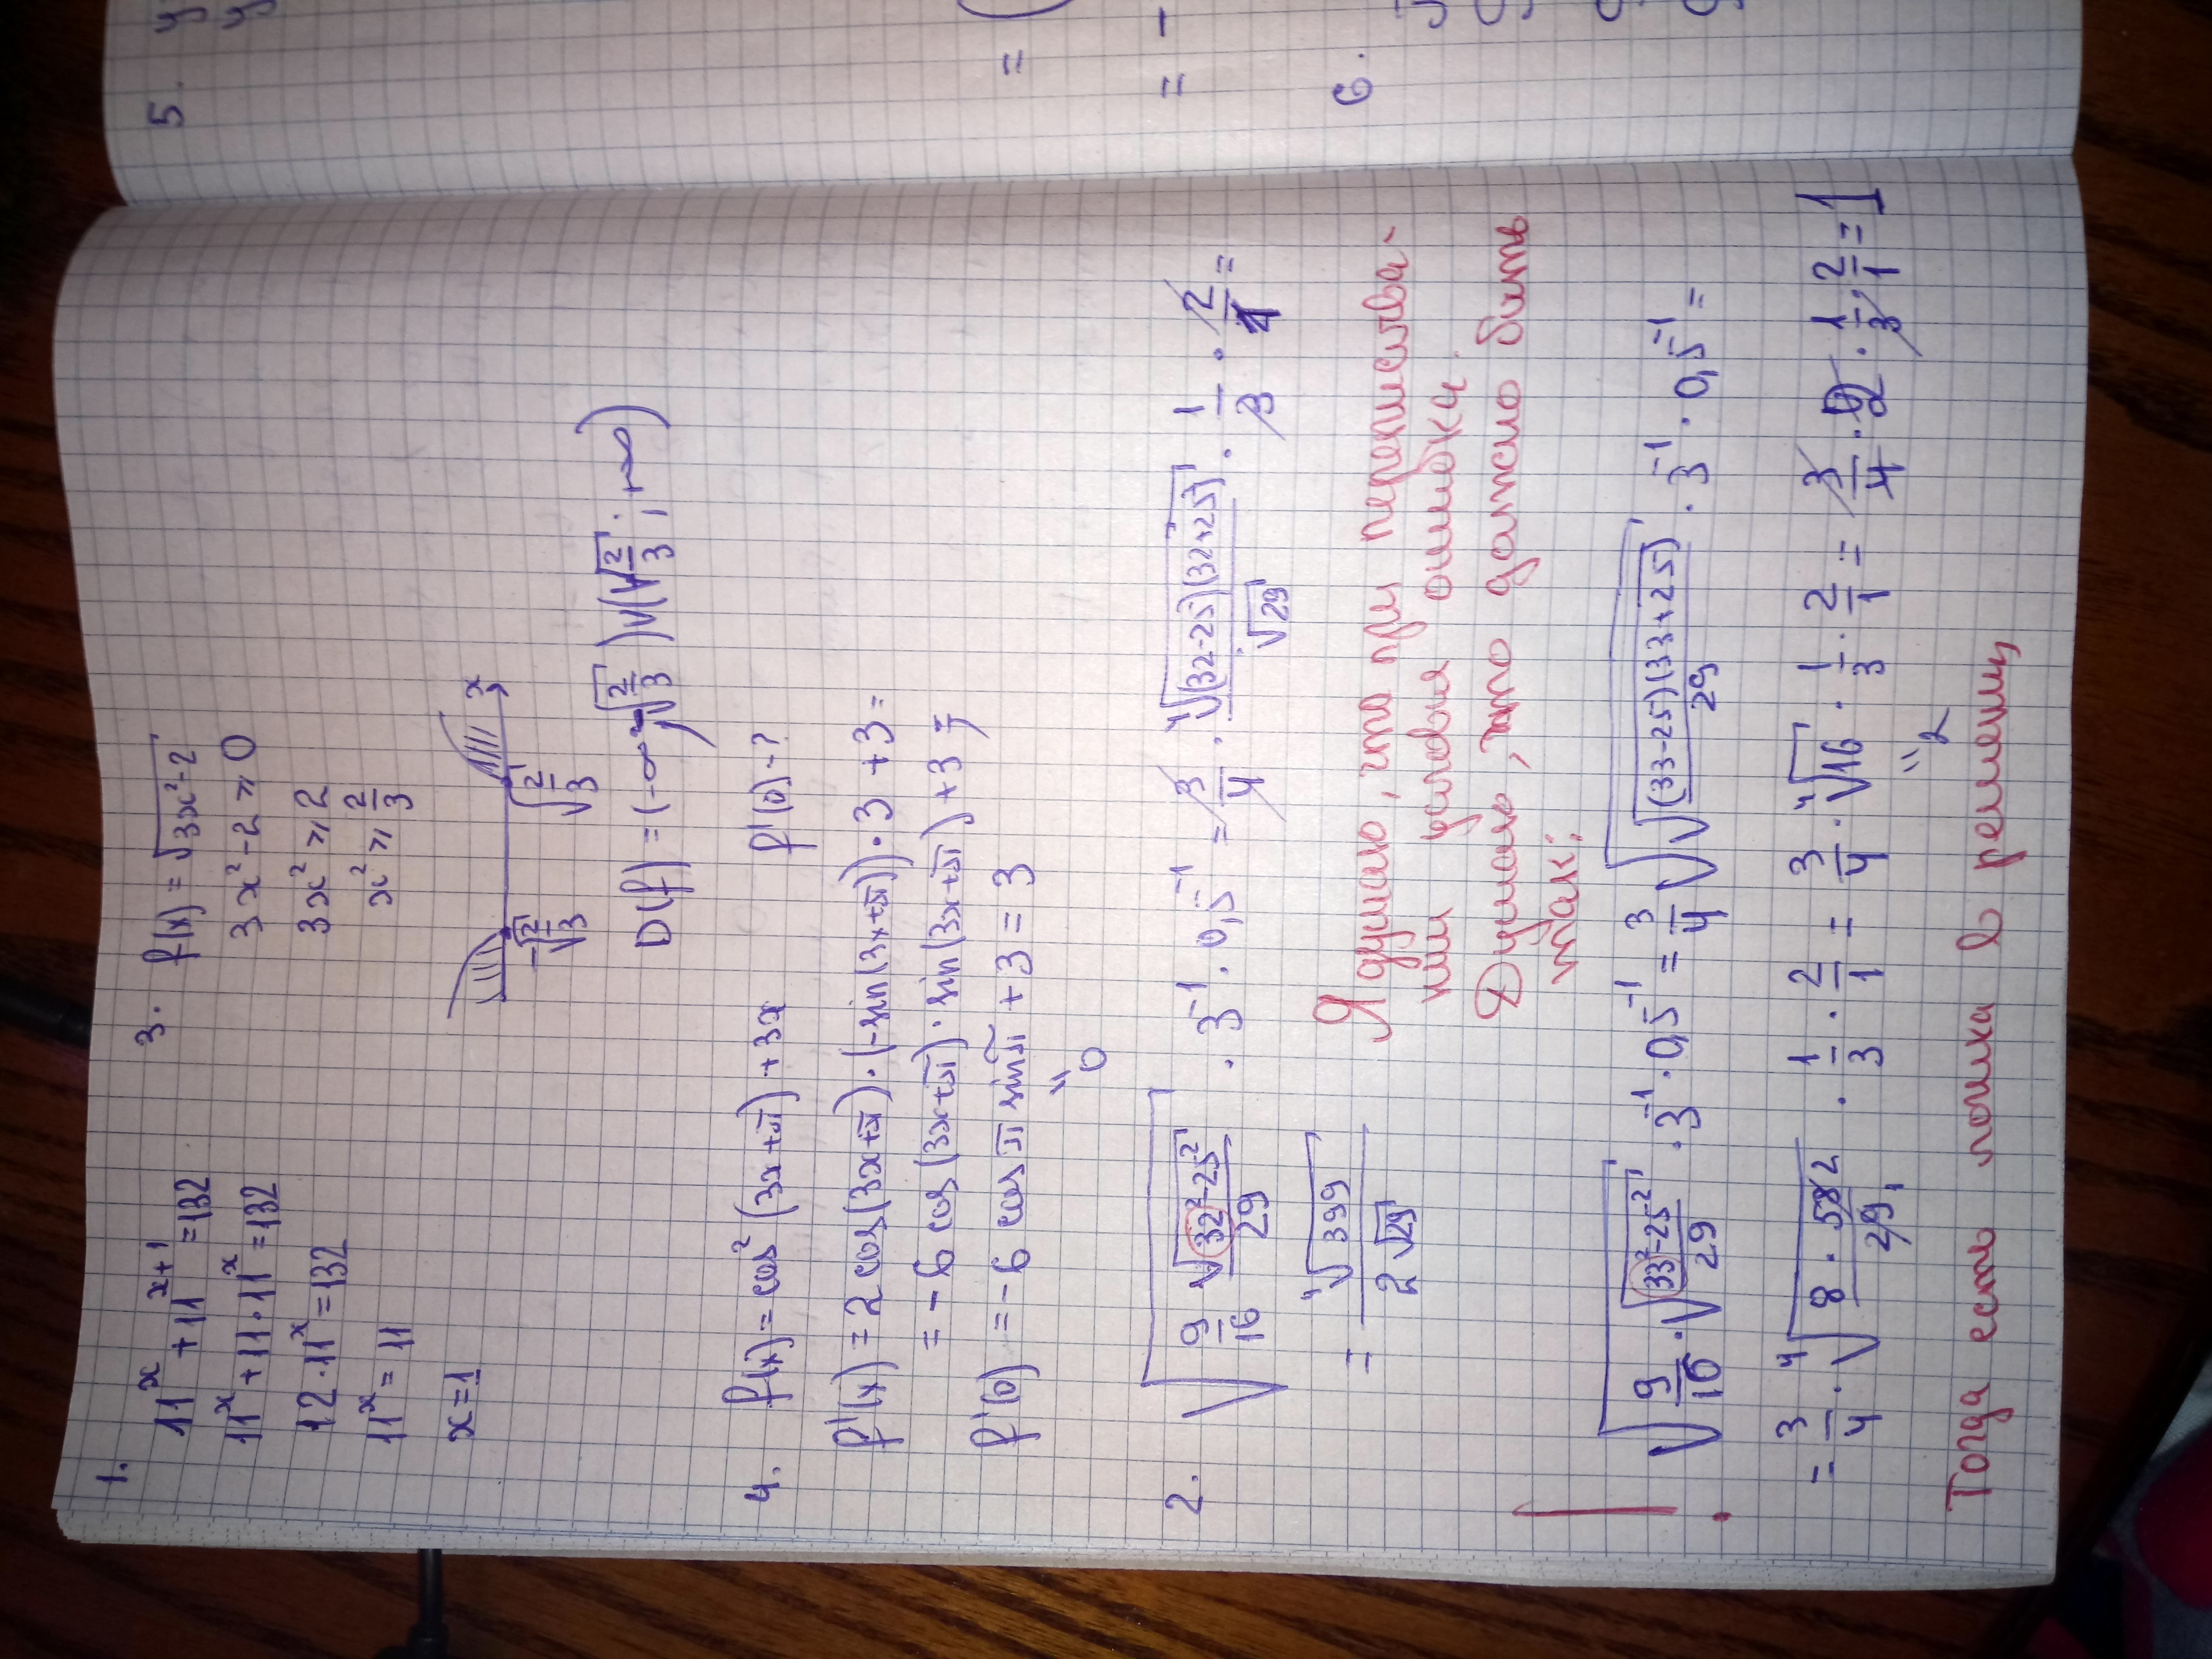 1.
11^x + 11^(x+1) = 132
11^x + 11 · 11^x = 132
12 · 11^x = 132
11^x = 11
x = 1
3. f(x) = √(3x² - 2)
3x² - 2 ⩾ 0
3x² ⩾ 2
x² ⩾ 2/3
-√(2/3) √(2/3) x
D(f) = (-∞; -√(2/3)) ∪ (√(2/3); +∞)
4. f(x) = cos²(3x+π) + 3x f'(0) - ?
f'(x) = 2 cos(3x+π) · (-sin(3x+π)) · 3 + 3 =
= -6 cos(3x+π) · sin(3x+π) + 3;
f'(0) = -6 cos π sin π + 3 = 3
" 0
2. √(9/16 √(32² - 25²)/29) · 3^-1 · 0,5^-1 = 3/4 · ⁴√((32-25)(32+25))/√29 · 1/3 · 2/1 =
= ⁴√399/(2√29)
Я думаю, что при переписыва-
нии условия ошибка.
Думаю, что должно быть
так:
√(9/16 · √((33² - 25²)/29)) · 3^-1 · 0,5^-1 = 3/4 √(√((33-25)(33+25)/29)) · 3^-1 · 0,5^-1 =
= 3/4 · ⁴√(8 · 58 2/29 1) · 1/3 · 2/1 = 3/4 · ⁴√16 · 1/3 · 2/1 = 3/4 · 2 · 1/3 · 2/1 = 1
" 2
Тогда есть логика в решении
5. у
у
=
= -
6.